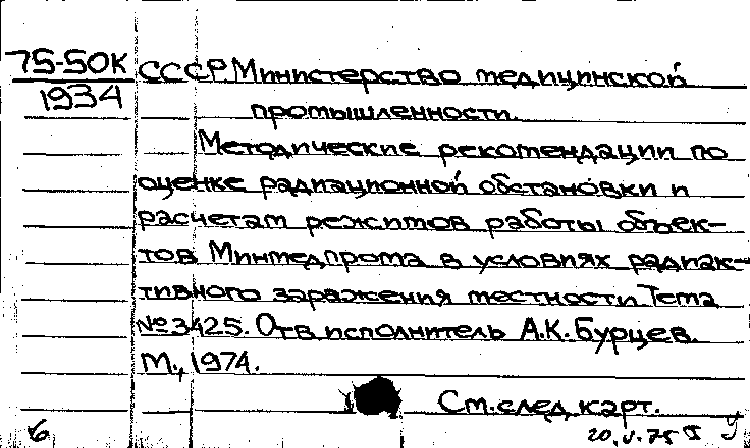 75-50К
1934
СССР. Министерство медицинской
промышленности.
Методические рекомендации по
оценке радиационной обстановки и
расчетам режимов работы объек-
тов Минмедпрома в условиях радиак-
тивного заражения местности Тема
№3425. Отв исполнитель А.К.Бурцев.
М., 1974.
См. след. карт.
6
20.V.75